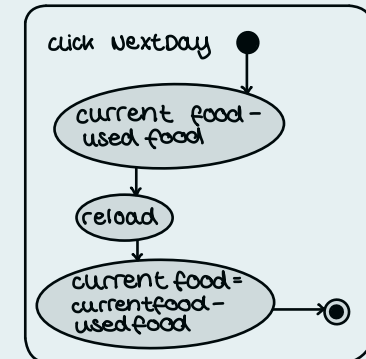 click NextDay
current food -
used food
reload
current food =
currentfood -
usedfood